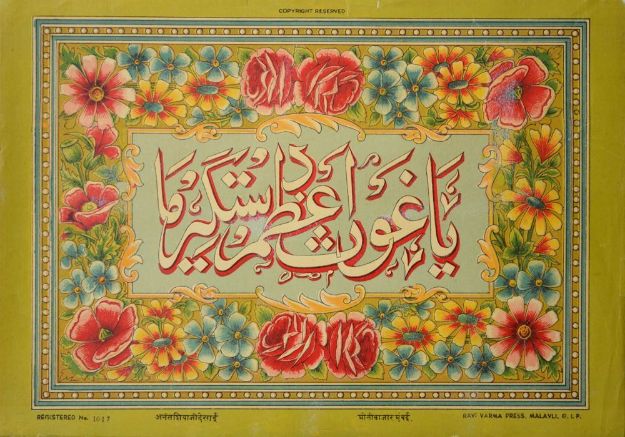 COPYRIGHT RESERVED
یا غوث اعظم دستگیر ما
REGISTERED No. 1017
अनंतशिवाजीदेसाई
मोतीबाजार मुंबई.
RAVI VARMA PRESS, MALAVLI, G. I. P.